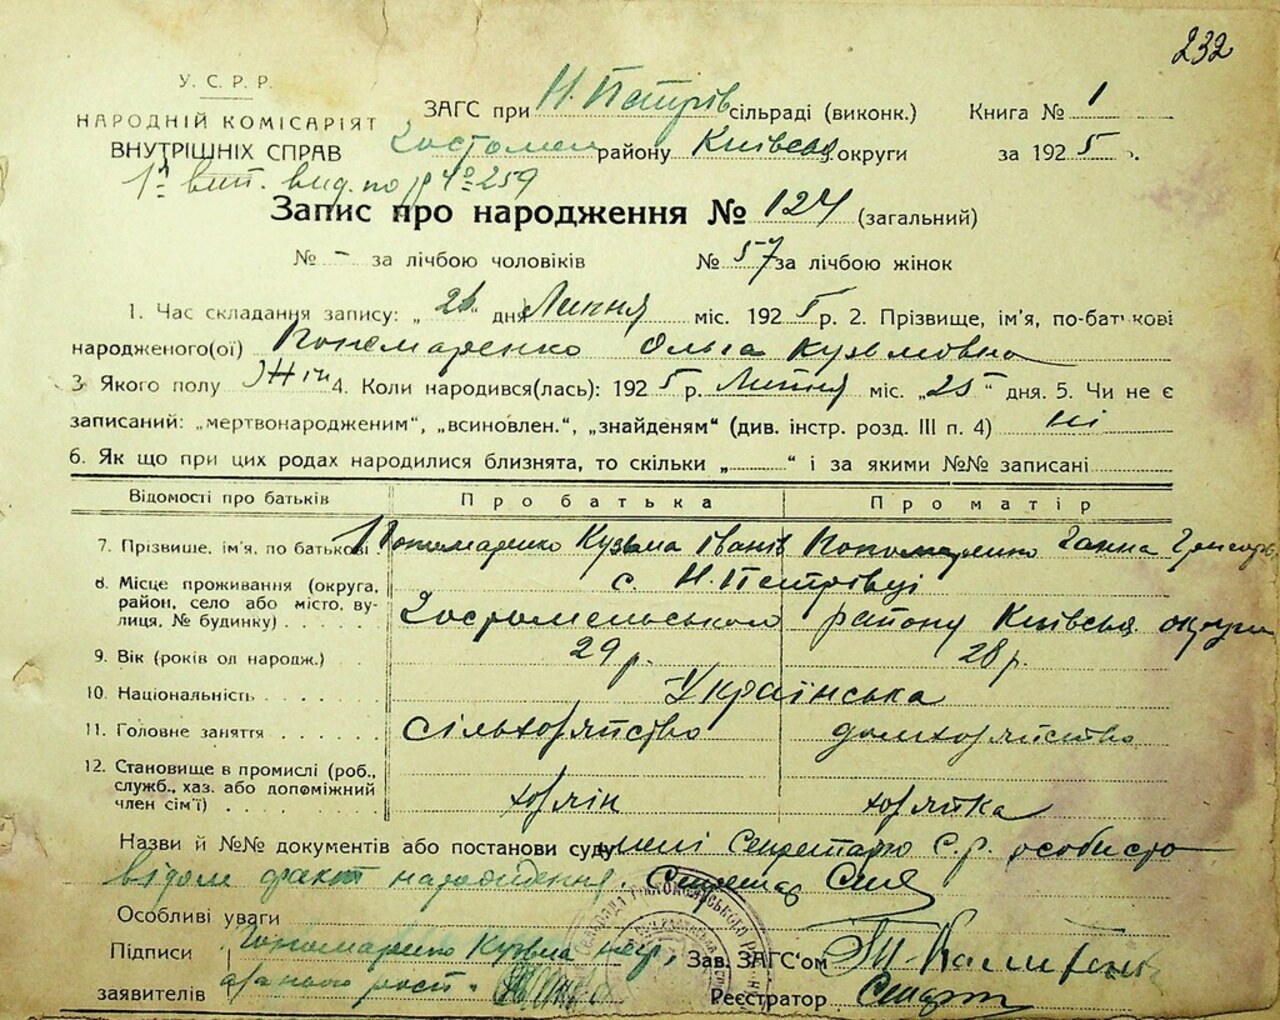 232
У. С. Р. Р.
НАРОДНІЙ КОМІСАРІЯТ
ВНУТРІШНІХ СПРАВ
ЗАГС при Н. Петрів сільраді (виконк.) Книга № 1
Гостомел району Київськ округи за 1925 р.
вид. по № 259
Запис про народження № 124 (загальний)
№ - за лічбою чоловіків № 57 за лічбою жінок
1. Час складання запису: „ 26 " дня Липня міс. 1925 р. 2. Прізвище, ім'я, по-батькові
народженого(ої) Пономаренко Ольга Кузьмовна
3 Якого полу Жін 4. Коли народився(лась): 1925 р. Липня міс. „25" дня. 5. Чи не є
записаний: „мертвонародженим", „всиновлен.", „знайденям" (див. інстр. розд. III п. 4) ні
6. Як що при цих родах народилися близнята, то скільки „ " і за якими №№ записані
Відомості про батьків Про батька Про матір
7. Прізвише, ім'я, по батькові Пономаренко Кузьма Іванів Пономаренко Ганна Григорів
8. Місце проживання (округа, район, село або місто, вулиця, № будинку) с. Н. Петрівці
Гостомельського району Київськ округи
9. Вік (років од народж.) 29 р. 28 р.
10. Національність Українська
11. Головне заняття сільхозяйство домхозяйство
12. Становище в промислі (роб., служб., хаз. або допоміжний член сім'ї) хозяїн хозяйка
Назви й №№ документів або постанови суду мені Секретарю С.р. особисто
відом факт народження. Секретар
Особливі уваги
Підписи Пономаренко Кузьма Зав. ЗАГС'ом
заявителів Реєстратор